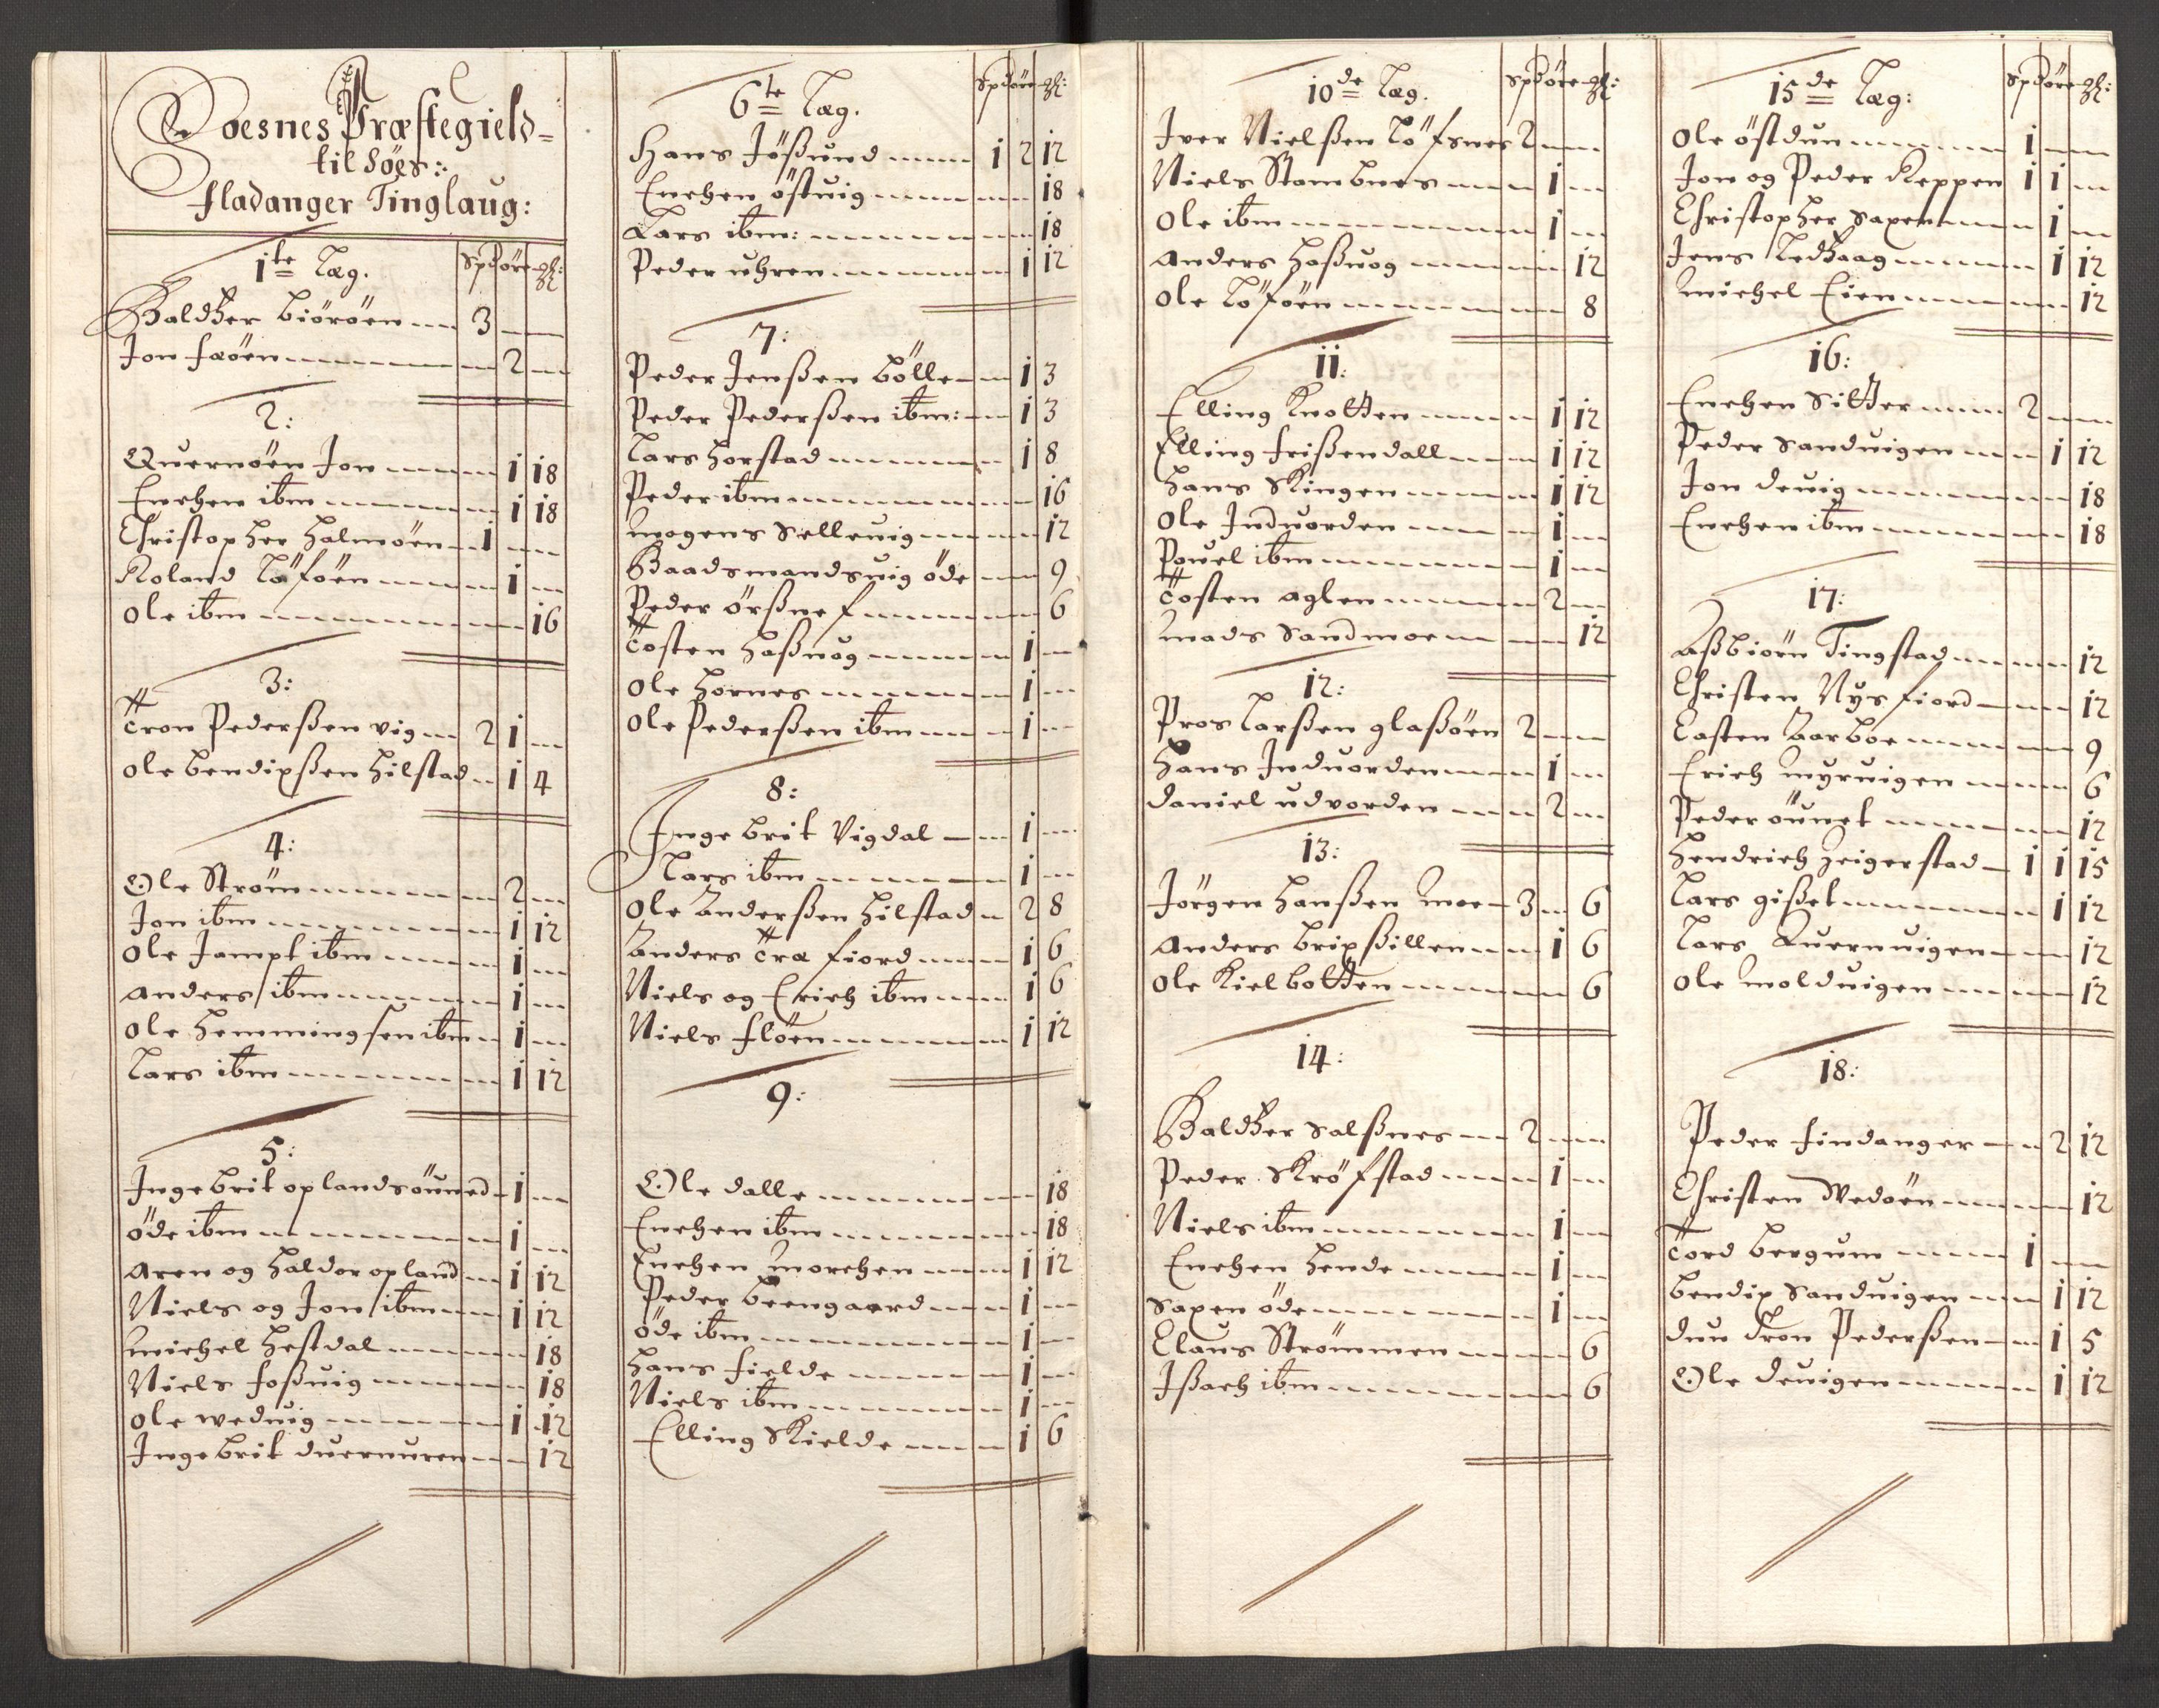 Foesnes Præstegield
til Söes:
fladanger Tinglaug:
1te Læg. Spd öre gl:
Baltzer biöröen 3
Jon faöen 2
2:
Quernöen Jon 1 18
Enchen ibm 1 18
Christopher halmöen 1
Roland Löföen 1
Ole ibm 16
3:
Tron Pederßen Vig 2 1
Ole bendixßen hilstad 1 4
4:
Ole Ström 2
Jon ibm 1 12
Ole Jampt ibm 1
Anders ibm 1
Ole Hemmingsen ibm 1
Lars ibm 1 12
5:
Ingebrit oplandsöuned 1
öde ibm 1
Aren og haldor opland 1 12
Niels og Jon ibm 1 12
Michel hestdal 18
Niels foßuig 18
Ole weduig 1 12
Ingebrit duernuren 12
6te Læg. Spd öre gl:
Hans Jößund 1 2 12
Enchen östuig 18
Lars ibm: 18
Peder uhren 1 12
7:
Peder Jenßen bölle 1 3
Peder Pederßen ibm: 1 3
Lars horstad 1 8
Peder ibm 16
Mogens Selleuig 12
Baadsmandsuig öde 9
Peder örßnef 6
Tosten haßuog 1
Ole hornes 1
Ole Pederßen ibm 1
8:
Ingebrit Vigdal 1
Lars ibm 1
Ole Anderßen hilstad 2 8
Anders Træfiord 1 6
Niels og Erich ibm 1 6
Niels flöen 1 12
9:
Ole dalle 18
Enchen ibm 18
Enchen Morchen 1 12
Peder beengaard 1
öde ibm 1
Hans fielde 1
Niels ibm 1
Elling Skielde 1 6
10de Læg. Spd öre gl:
Iver Nielßen Löfsnes 2
Niels Stambnes 1
Ole ibm 1
Anders haßuog 12
Ole Löföen 8
11:
Elling Knotten 1 12
Elling frißendall 1 12
Hans Skingen 1 12
Ole Induorden 1
Pouel ibm 1
Tosten aglen 2
Mads Sandmoe 12
12:
Pros Larßen glaßöen 2
Hans Induorden 1
Daniel udvorden 2
13:
Jörgen Hanßen Moe 3 6
Anders brixßillen 1 6
Ole Kielbotten 6
14:
Baltzer Salßnes 2
Peder Skröfstad 1
Niels ibm 1
Enchen hende 1
Saxen öde 1
Claus Strömmen 6
Ißach ibm 6
15de Læg: Spd öre gl:
Ole östdun 1
Jon og Peder Reppen 1 1
Christopher Saxen 1
Jens Ledhaag 1 12
Michel Eien 12
16:
Enchen Sitter 2
Peder Sanduigen 1 12
Jon deuig 18
Enchen ibm 18
17:
Aßbiörn Tingstad 12
Christen Nysfiord 12
Casten Aarboe 9
Erich Myruigen 6
Peder öunet 12
Hendrich Zeigerstad 1 1 15
Lars gißet 1 12
Lars Quernuigen 12
Ole Molduigen 12
18:
Peder findanger 2 12
Christen Wedöen 12
Tord bergum 1
bendix Sanduigen 1 12
dun Tron Pederßen 1 5
Ole deuigen 1 12